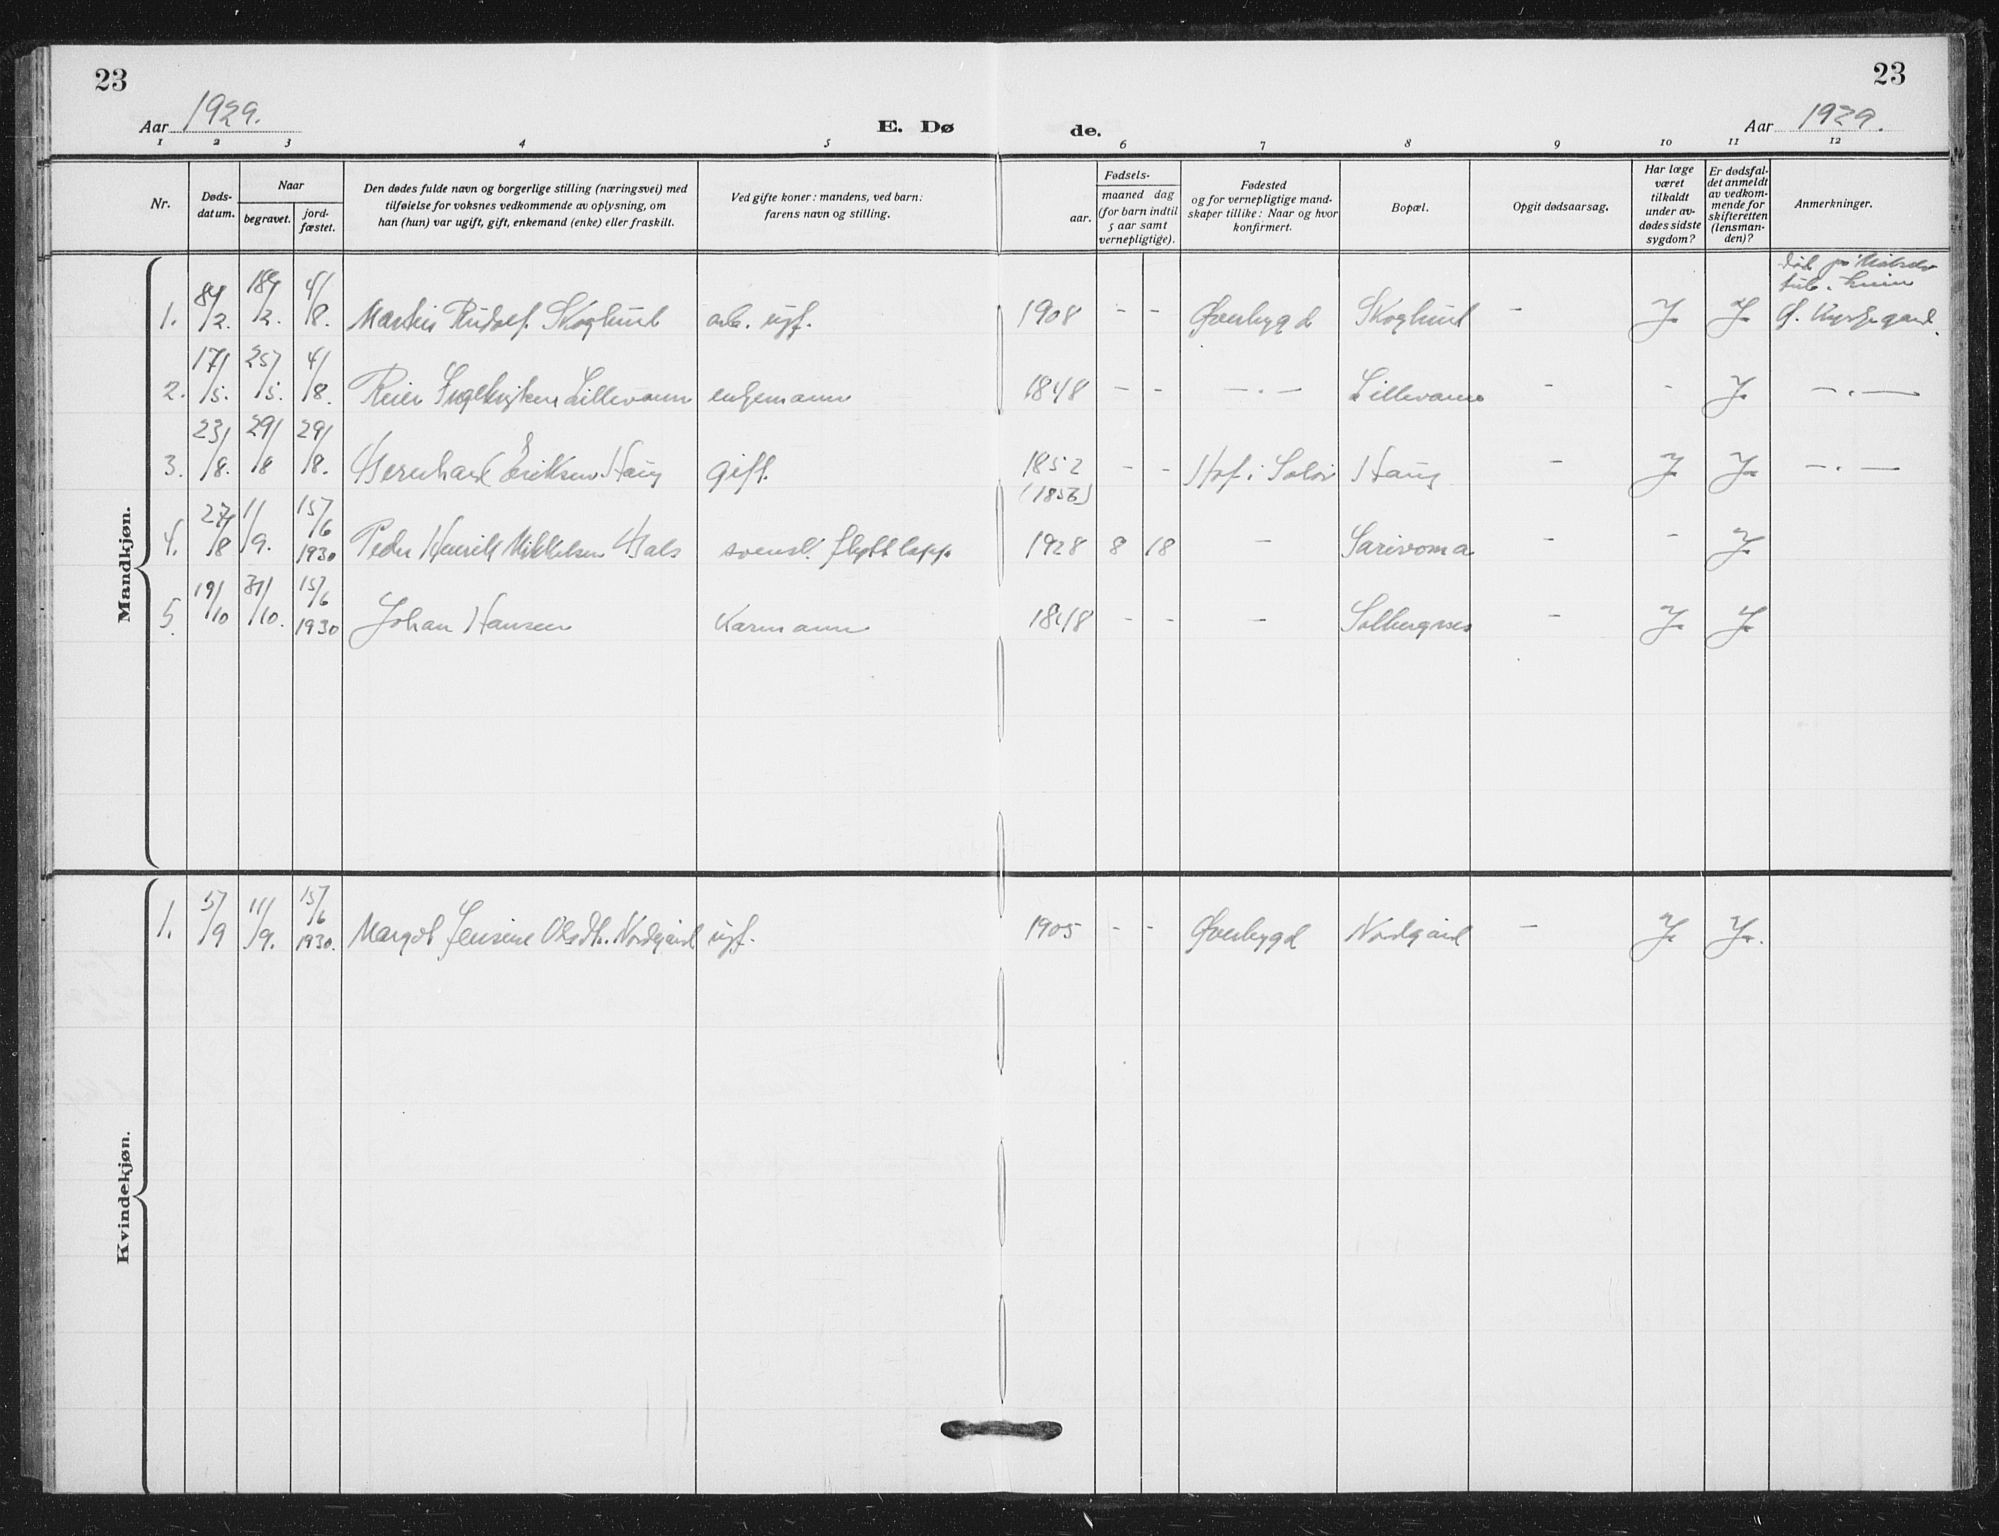 23
23
Aar 1929.
E. Dø
de.
Aar 1929.
1 2 3 4 5 6 7 8 9 10 11 12
Nr.
Døds-
datum.
Naar
begravet.
jord-
fæstet.
Den dødes fulde navn og borgerlige stilling (næringsvei) med
tilføielse for voksnes vedkommende av oplysning, om
han (hun) var ugift, gift, enkemand (enke) eller fraskilt.
Ved gifte koner: mandens, ved barn:
farens navn og stilling.
Fødsels-
aar.
maaned dag
(for barn indtil
5 aar samt
vernepligtige).
Fødested
og for vernepligtige mand-
skaper tillike: Naar og hvor
konfirmert.
Bopæl.
Opgit dødsaarsag.
Har læge
været
tilkaldt
under av-
dødes sidste
sygdom?
Er dødsfal-
det anmeldt
av vedkom-
mende for
skifteretten
(lensman-
den)?
Anmerkninger.
Mandkjøn.
1. 8/2. 18/2. 4/8. Martin Rudolf Skoglund arb. ugf. 1908 - - Øverbygd Skoglund - J. J. Død på
tub. heim
Ø. Kyrkjegard.
2. 17/5. 25/5. 4/8. Reier Lillevann enkemann 1848 - - -"- Lillevann - - J. -"-
3. 23/8. 29/8 29/8. Bernhard Eriksen Haug gift. 1852 - - Hof i Solør Haug - J. J. -"-
(1856)
4. 27/8 1/9. 15/6 1930 Peder Henrik Mikkelsen Bals svensk flyttlapp 1928 8 18 - Sarivoma - - J.
5. 19/10 31/10. 15/6 1930 Johan Hansen Kårmann 1848 - - - Solbergnes - J. J.
Kvindekjøn.
1. 5/9 11/9. 15/6 1930. Margot Jensine Olsdtr. Nordgård ugf. 1905 - - Øverbygd Nordgård - J. J.